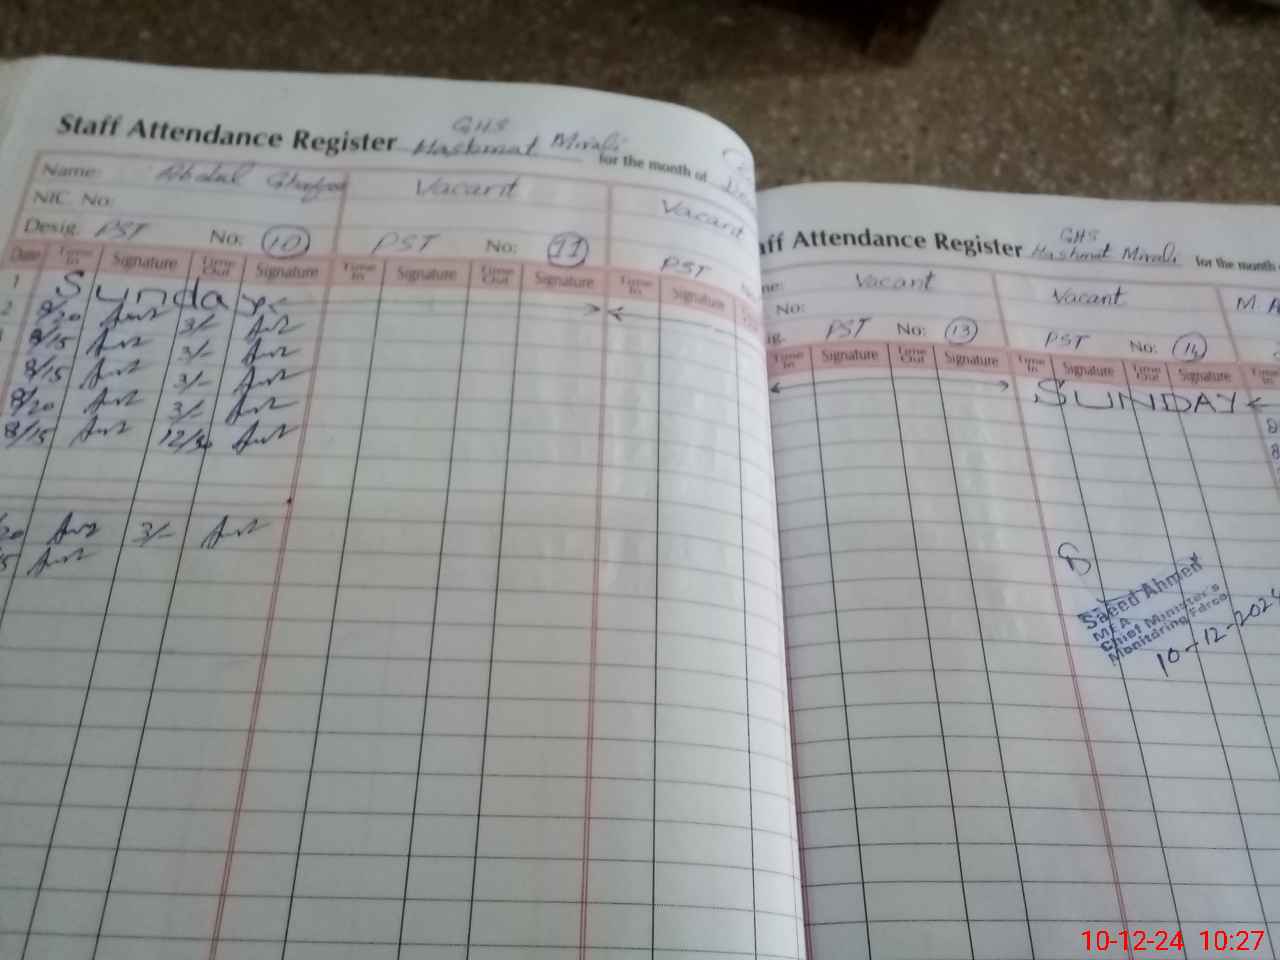 Staff Attendance Register GHS Hashmat Mirali for the month of
Name: Abdul Ghafoor Vacant Vacant
NIC. No:
Desig. PST No: 10 PST No: 11 PST
Date Time In Signature Time Out Signature Time In Signature Time Out Signature Time In Signature
1 Sunday
2 8/20 3/-
8/15 3/-
8/15 3/-
8/20 3/-
8/15 12/30
3/-
Attendance Register GHS Hashmat Mirali for the month
Vacant Vacant M.
No:
PST No: 13 PST No: 14
Time In Signature Time Out Signature Time In Signature Time Out Signature
SUNDAY
Saeed Ahmed
MEA
Chief Minister's
Monitoring Force
10-12-2024
10-12-24 10:27